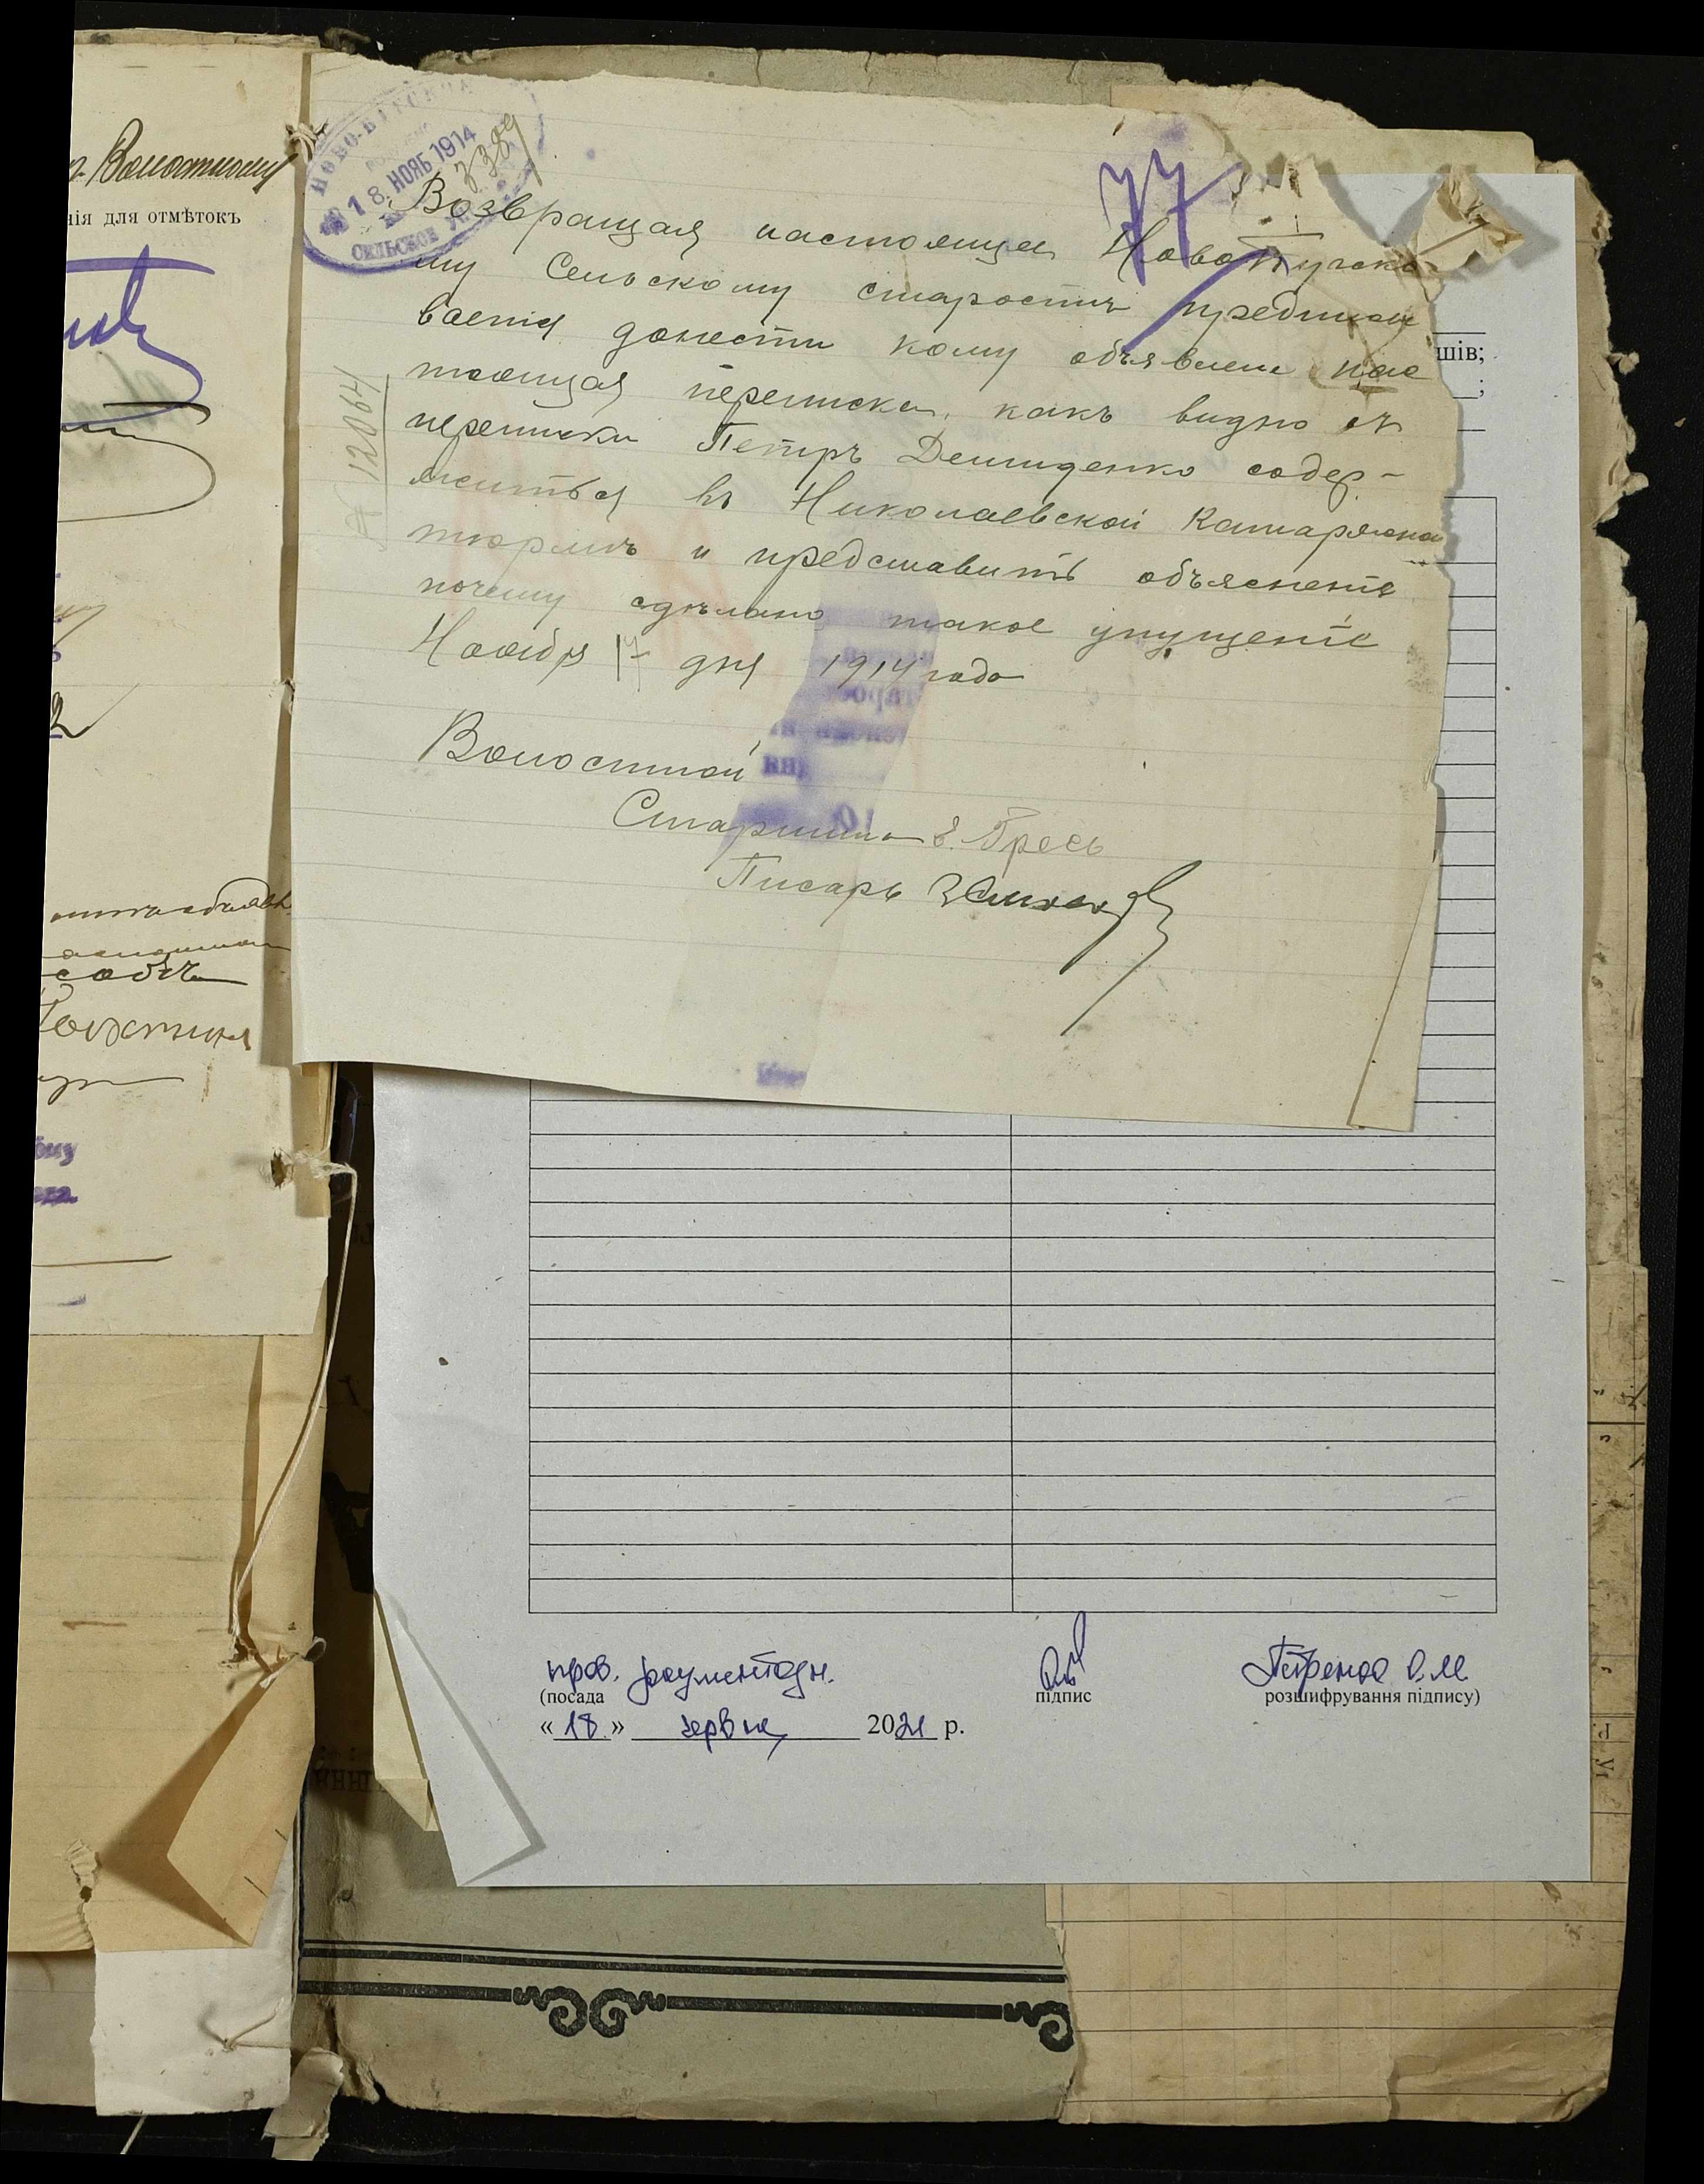 Волостному
нія для отмѣтокъ
НОВО-БУГСКОЕ
18 НОЯБ 1914
3389
СЕЛЬСКОЕ
77
№ 12064
Возвращая настоящее Новобугско-
му Сельскому старостѣ предписы
вается донести кому объявлена нас
тоящая переписка, какъ видно съ
переписки Петръ Демиденко содер-
жится въ Николаевской Каторжной
тюрьмѣ и представить объясненіе
почему сдѣлано такое упущеніе
Ноября 17 дня 1914 года
Волостной
Старшина
Писарь
собѣ
шів;
;
пров. документозн.
(посада
підпис
Петренко О.М.
розшифрування підпису)
« 18 » червня 2021 р.